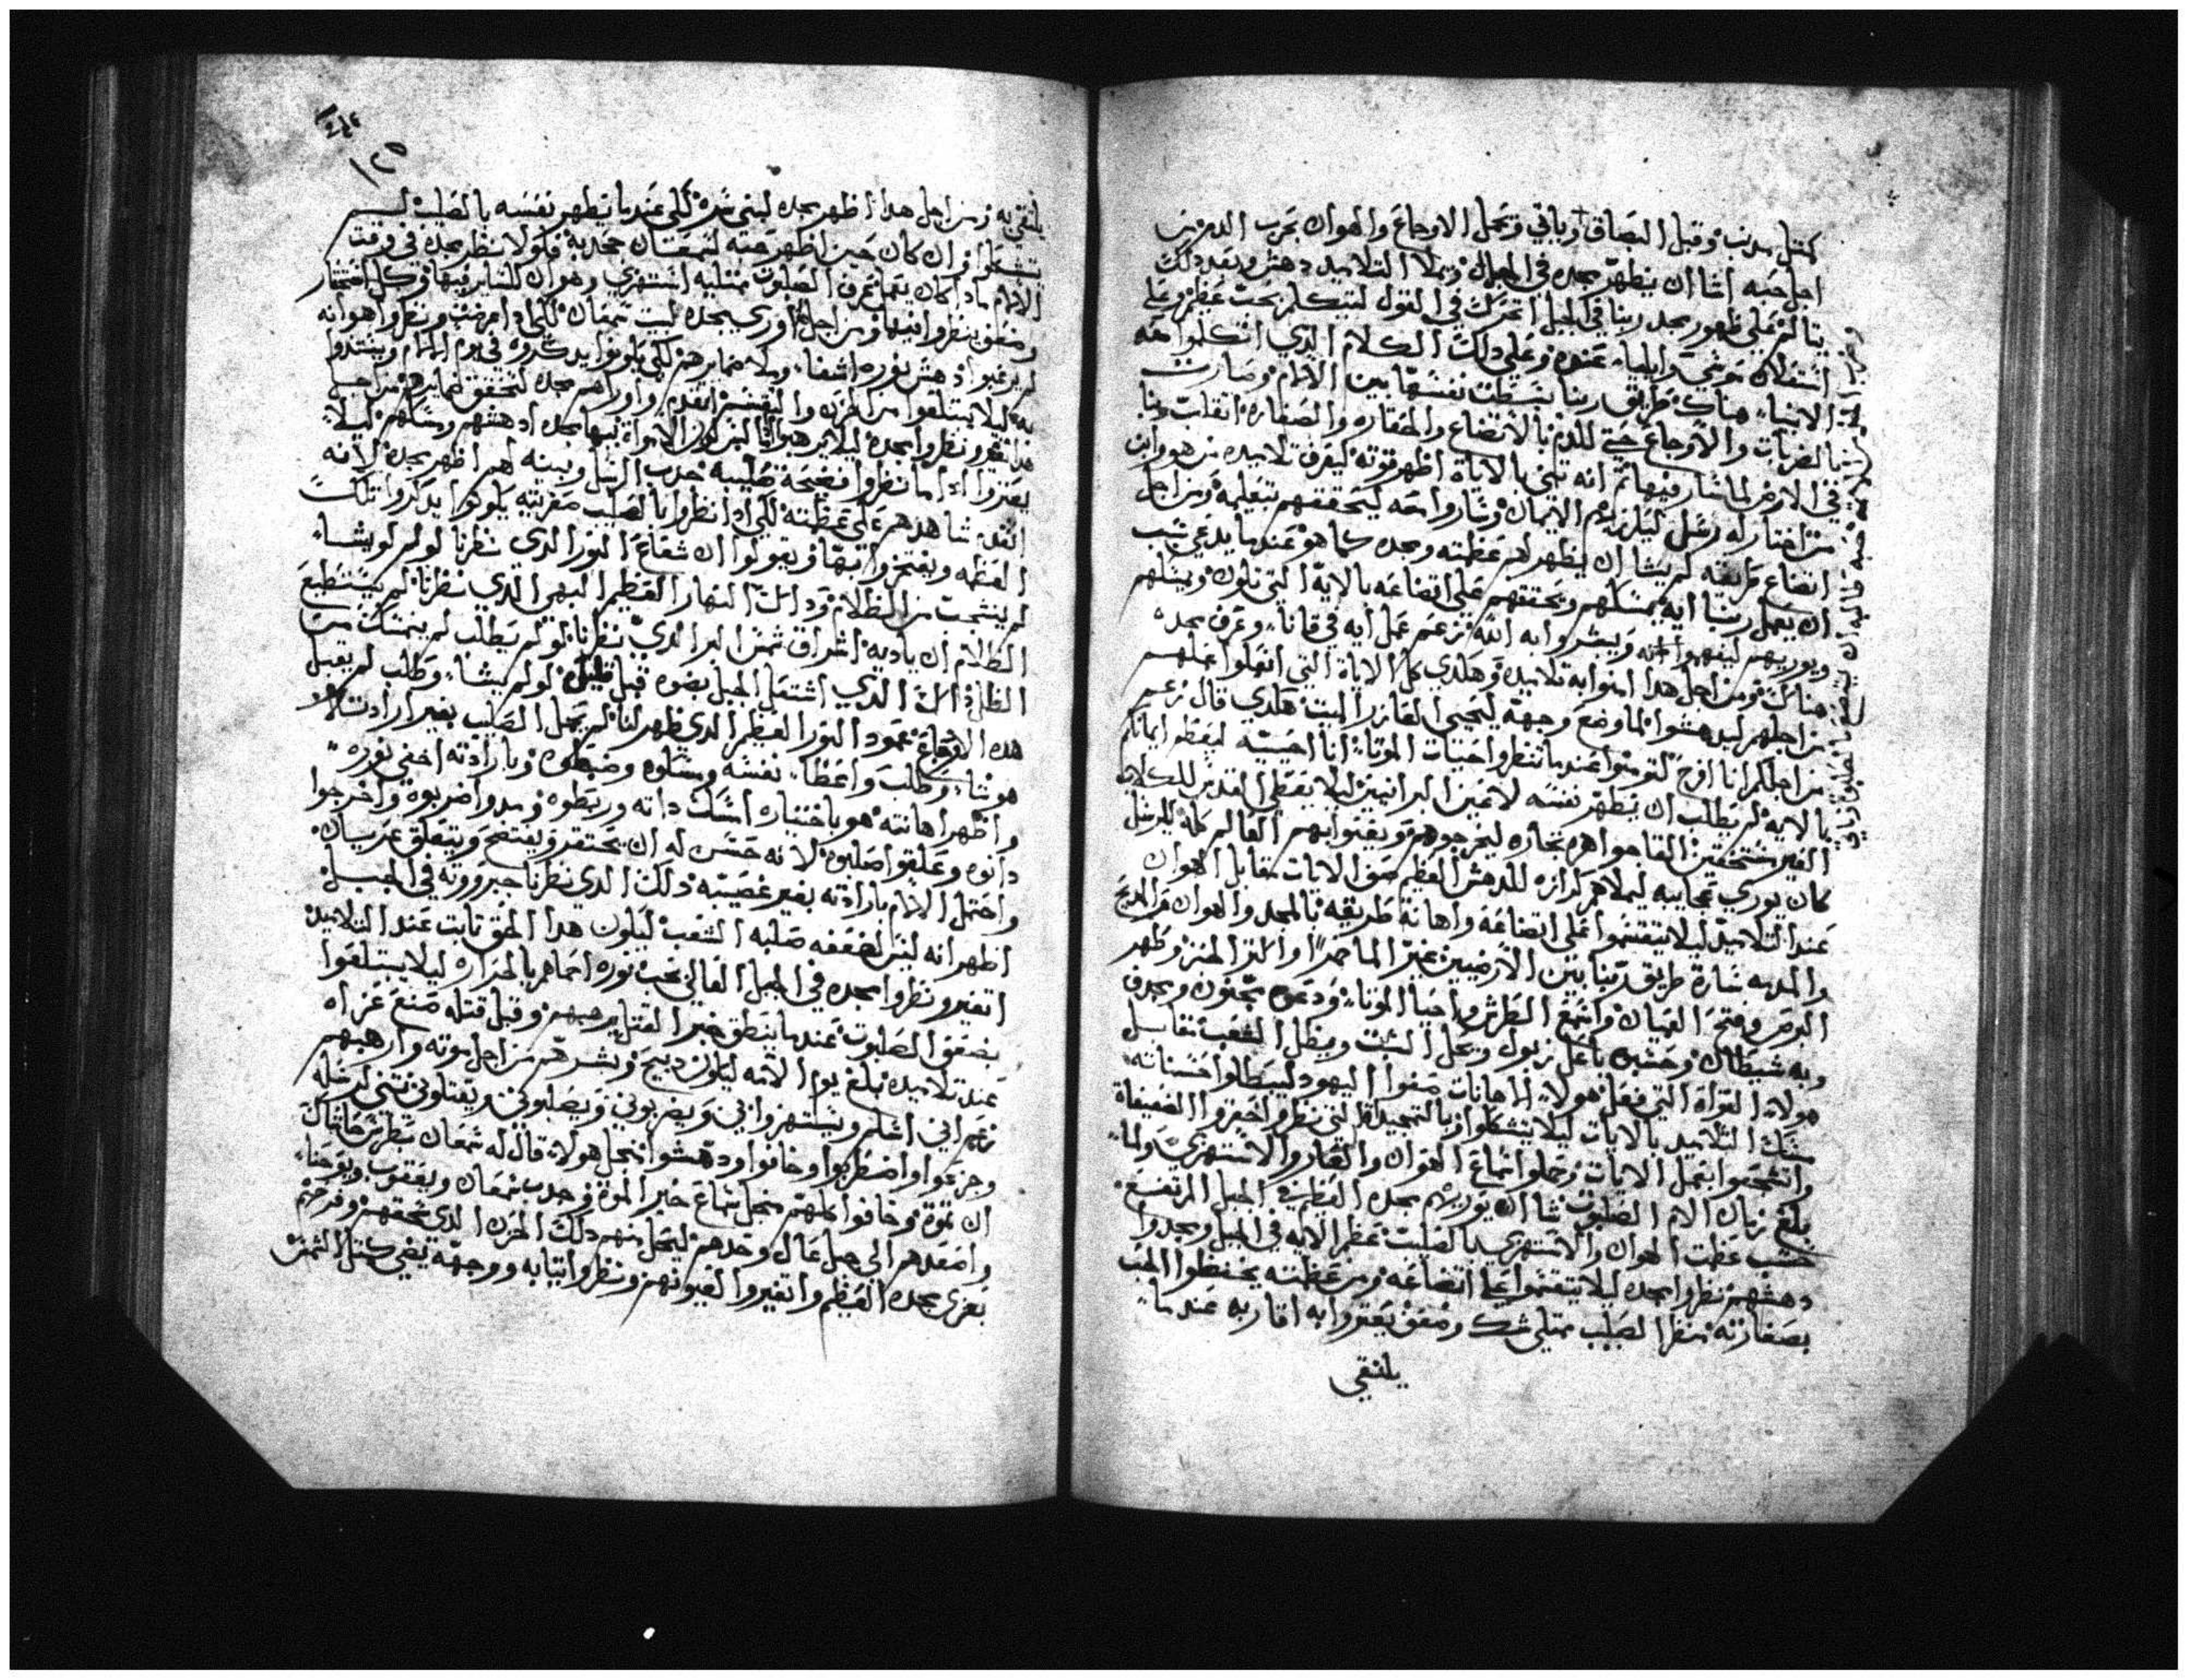 كمتل مدنب وقبل البصاق وباقي وتحمل الاوجاع والهوان بحرب الدم من
اجل حبه انشا ان يظهر مجده في الجبال ويملا التلاميد دهش وبعد دلك
يتالم على ظهور مجد ربنا في الجبل اتحرك في القول لنتكلم بحت عظم وعلى
اشتعلان موسي وايلياء عنده وعلى دلك الكلام الدي اتكلموا معه
الانبياء هناك طريق ربنا بسطت نفسها بين الالام وصارت
بالضربات والاوجاع حتي للدم بالاتضاع والحقاره والصغاره اتقلبت
في الارض لما شار فيها تم انه تني بالاياة اظهر قوته ليعرف تلاميده من هو وابن
من اختار له رسل ليلزمهم الايمان وشاروا معه ليحققهم بتعليمه ومن اجل
اتضاع طريقه لم يشا ان يظهر لهم عظمته ومجده كما هو عندما يدعي شب
ان يعمل ربنا ايه يمسكهم ويحققهم على اتضاعه بالايه التي تكون ويمسكهم
ويوريهم ليفهموا انه ويبشروا انه الله نزعم عمل ايه في قانا وعرف مجده
هناك ومن اجل هدا امنوا به تلاميده وهكدي كل الاياة التي اتعلوا عملهم
من اجلهم ليدهشوا لما وضع وجهه ليحيي العازر الميت هكدي قال نزعم
من اجلكم انا افرح لتومنوا عندما تنظروا احيات الموتا انا احييته ليعطوا ايمانكم
بالايه لم يطلب ان يظهر نفسه لاعين البرانيين ليلا يعطي القدس للكلاب
الغير مستحقين القا جواهره بحاره ليخرجوهم ويفتوا بهم العالم كله للرسل
كان يوري عجايبه ليملاهم كرازه للدهش العظيم صف الايات مقابل الهوان
عند التلاميد ليلا يتقسموا على اتضاعه واهانة طريقه بالمجد والهوان والمديح
والمدمه شارة طريق ربنا بين الارضيين غير الما خمرا واكتر الخبز وطهر
البرص وفتح العميان واسمع الطرش واحيا الموتا ودعوه مجنون ومجدف
وبه شيطان وحسبوه باعل زبول ويحل السبت ويضل الشعب مقابل
هولاء القواة التي فعل هولاء الاهانات صفوا اليهود ليبطلوا حسناته
مسك التلاميد بالايات ليلا يتشككوا وبالتمجيد التي نظروا احتقروا الضعيفاة
واتشجعوا بعمل الايات وحملوا سماع الهوان والعار والاستهزي ولما
بلغ زمان الام الصلبوت شا ان يوريهم مجده العظيم في الجبل المرتفع
حسب عظمت الهوان والاستهزي بالصليب عظم الايه في الجبل ومجدوا
دهشتهم نظروا مجده ليلا يتقسموا على اتضاعه ومن عظمته يحفظوا الحب
بصغارته منظر الصليب ممتلي شك وصعق يعتروا به اقاربه عندما
يلتقي
١٢٥
يلتقي به ومن اجل هدا اظهر مجده لبني سره لكي عندما يظهر نفسه بالصليب ليس
يتشككوا وان كان حين اظهر حبه لشمعان جحد به فلو لا نظر مجده في وقت
الالام مادا كان يعمل عرف الصلبوت ممتليه استهزي وهوان للناس فيها وكل افتخار
وصعق ينظروا اليها ومن اجل هدا اوري مجده لبيت شمعان لكي ادا مرضت ونظروا هوانه
لم يرتعبوا دهش نوره اشفا وملا ضمايرهم لكي يكونوا يدكروه في يوم الالام ويسندوا
به ليلا يبتلعوا من الحزن والتقسيم اتقدم واوراهم مجده لتحقق ضمايرهم من اجل
هدا اتغير ونظروا مجده ليلا يرهبوا
يعتروا ادا ما نظروا فضيحة صليبه جدب الرسل وبنيه لهم اظهر مجده لانه
القد شاهدهم على عظمته لكي ادا نظروا بالصليب معرتيه يكونوا يدكروا تلك
العظمه ويفتخروا بها ويقولوا ان شعاع النور الدي نظرنا لو لم يشاء
لم ينشجب من الظلام ودالك النهار العظيم البهي الدي نظرنا لم يستطيع
الظلام ان ياديه اشراق شمس البر الدي نظرنا لو لم يطلب لم يتمسك من
الظل داك الدي اشتعل الجبل بضوه قبل قليل لو لم يشاء وطلب لم يقبل
هده الاوجاع عمود النور العظيم الدي ظهر لنا لم يحمل الصليب بغير ارادته لكن
هو شاء وطلب واعطاء نفسه ومسكوه وضبطوه وبارادته اخفي نوره
واظهر اهانته هو باختياره اسلم داته وربطوه ومدوا ضربوه واخرجوا
دانوه وعلقوا صلبوه لانه حسن له ان يحتقر ويفتضح ويتعلق عريان
واحتمل الالام بارادته بغير غصيبه دلك الدي نظرنا جبرووته في الجبل
اظهر انه ليس لضعفه صلبه الشعب ليكون هدا الحق تابت عند التلاميد
اتغير ونظروا مجده في الجبل العالي بحت نوره احماهم بالحراره ليلا يبتلعوا
بضعف الصلبوت عندما ينطق خبر القتل يرهبهم وقبل قتله صنع عزاه
عند تلاميده بلغ يوم الالامه ليكون دبيح وبشرهم من اجل موته وارهبهم
نزعم اني اسلم ويستهزوا بي ويضربوني ويصلبوني ويقتلوني نتني لرسله
وجزعوا واضطربوا وخافوا ودهشوا من اجل هولاء قال له شمعان بطرس حاشاك
ان تموة وخافوا كلهم من اجل سماع خبر الموة وجدب شمعان ويعقوب ويوحنا
واصعدهم الي جبل عال وحدهم ليحل منهم دلك الحزن الدي محقهم وفرحهم
بعزى مجده العظيم واتغيروا لعيونهم ونظروا تيابه ووجهه يضي كمتل الشمس